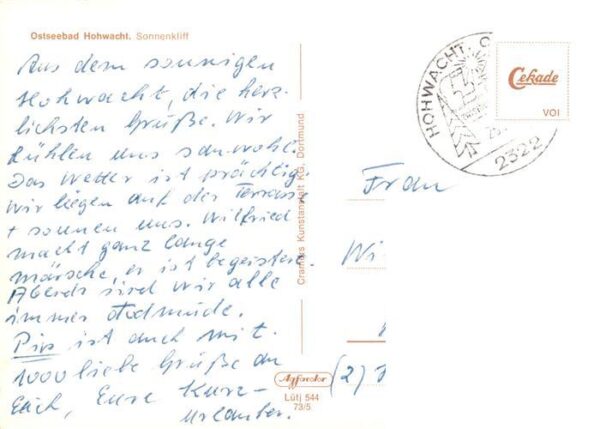 Ostseebad Hohwacht. Sonnenkliff
Aus dem sonnigen
Hohwacht, die herz-
lichsten Grüße. Wir
fühlen uns sauwohl.
Das Wetter ist prächtig.
Wir liegen auf der Terrasse
+ sonnen uns. Wilfried
macht ganz lange
märsche, er ist begeistert.
Abends sind wir alle
immer todmüde.
Pips ist auch mit.
1000 liebe Grüße an
Euch, Eure Kurz-
urlauber.
Cramers Kunstanstalt KG, Dortmund
Agfacolor
Lütj 544
73/5
HOHWACHT, O
2322
Cekade
VOI
Frau
Wi
(2)